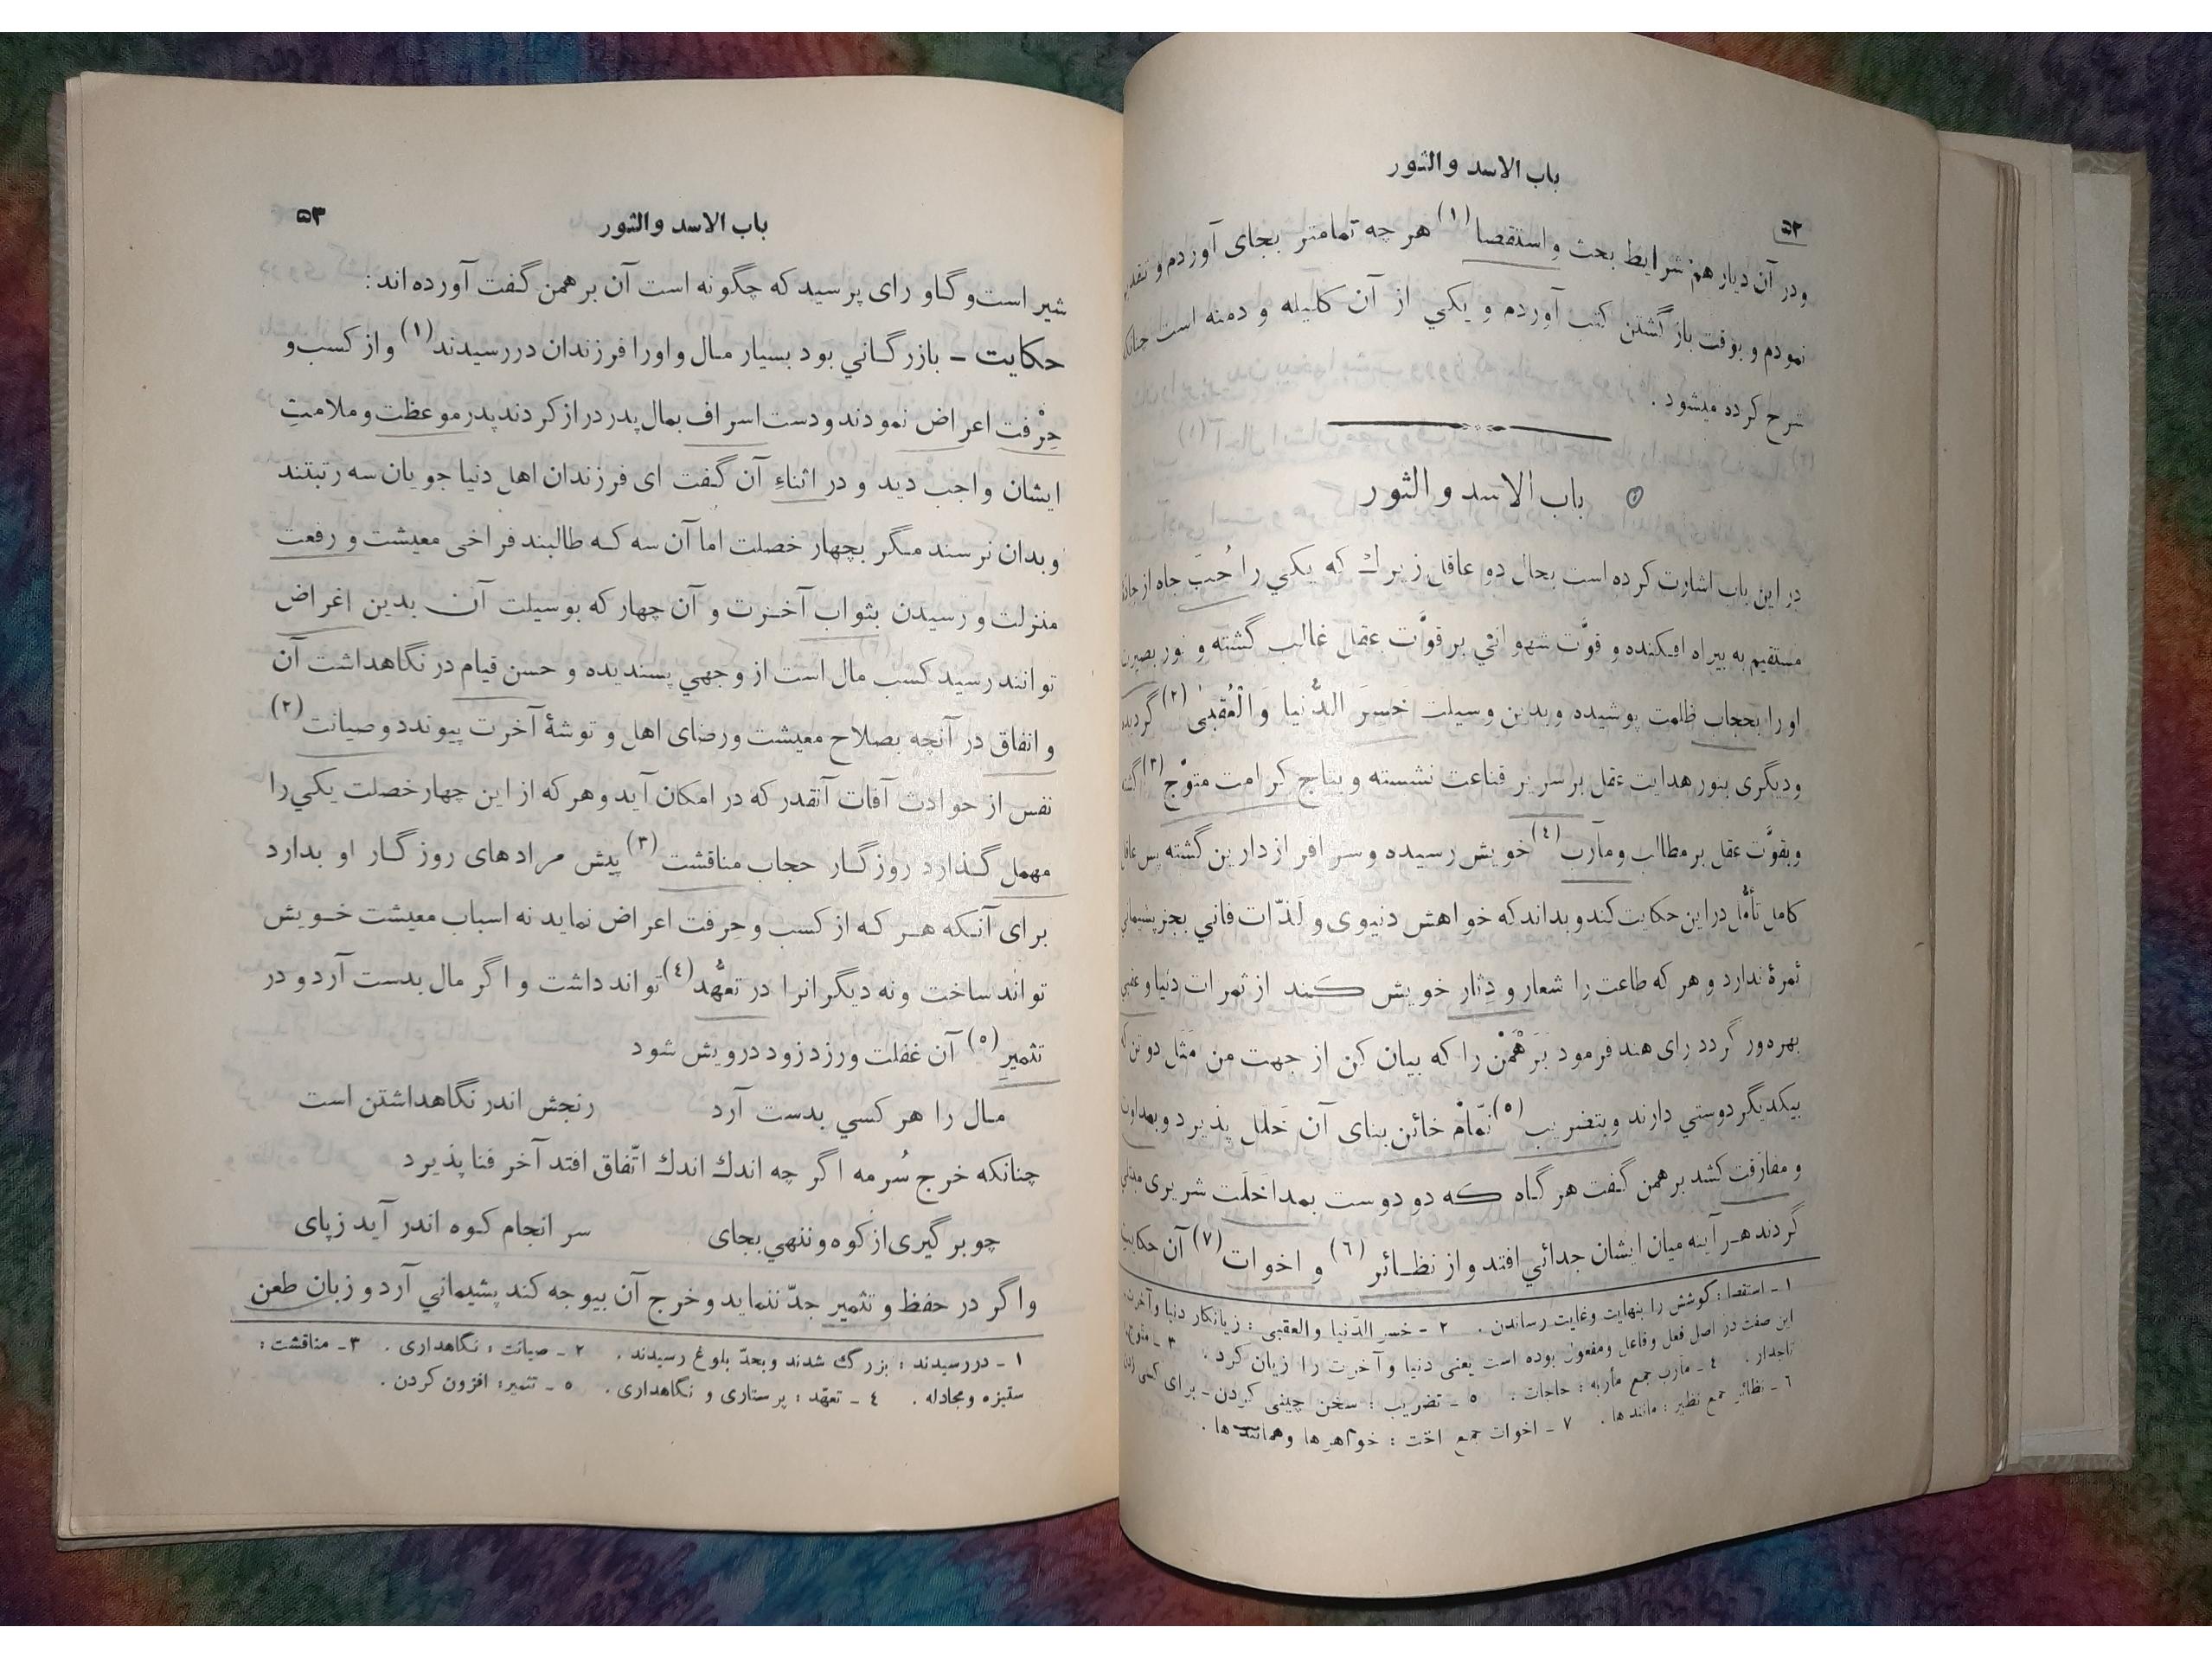 باب الاسد والثور
۵۲
ودر آن دیار هم شرایط بحث واستقصا (۱) هر چه تمامتر بجای آوردم و
نمودم و بوقت باز گشتن کتب آوردم و یکي از آن کلیله و دمنه است چنانکه
شرح کرده میشود .
باب الاسد و الثور
در این باب اشارت کرده است بحال دو عاقل زیرك که یکي را حُبّ جاه از
مستقیم به بیراه افکنده و قوّت شهوانی بر قوّت عقل غالب گشته و نور بصیرت
او را بحجاب ظلمت پوشیده وبدین وسیلت خَسِرَ الدُّنیا وَ الْعُقبیٰ (۲) گردیده
ودیگری بنور هدایت عقل بر سریر قناعت نشسته و بتاج کرامت متوّج (۳)
وبقوَّت عقل بر مطالب ومآرب (٤) خویش رسیده وسر افراز دارین گشته پس
کامل تأمُّل در این حکایت کند و بداند که خواهش دنیوی و لَذّات فاني بجز پشیماني
ثمرهٔ ندارد و هر که طاعت را شعار و دِثار خویش کند از ثمرات دنیا و عقبی
بهره‌ور گردد رای هند فرمود بَرَهْمَنْ را که بیان کن از جهت من مَثَل دو تن که
بیکدیگر دوستي دارند وبتضریب (٥) نَمّام خائن بنای آن خَلَل پذیرد و
و مفارقت کشد برهمن گفت هر گاه که دو دوست بمداخَلَت شریری مبتلي
گردند هر آینه میان ایشان جدائي افتد و از نظائر (٦) و اخوات (٧) آن حکایت
۱ - استقصا : کوشش را بنهایت وغایت رساندن . ۲ - خسر الدّنیا والعقبی : زیانکار دنیا وآخرت
این صفت در اصل فعل وفاعل ومفعول بوده است یعنی دنیا و آخرت را زیان کرد . ۳ - متوج :
تاجدار . ٤ - مآرب جمع مأربه : حاجات . ٥ - تضریب : سخن چینی کردن - برای کسی
٦ - نظائر جمع نظیر : مانندها . ٧ - اخوات جمع اخت : خواهرها وهمانندها .
باب الاسد والثور
۵۳
شیر است و گاو رای پرسید که چگونه است آن برهمن گفت آورده اند :
حکایت - بازرگاني بود بسیار مال و اورا فرزندان در رسیدند (۱) و از کسب و
حِرْفت اعراض نمودند و دست اسراف بمال پدر دراز کردند پدر موعظت و ملامتِ
ایشان واجب دید و در اثناءِ آن گفت ای فرزندان اهل دنیا جویان سه رتبتند
و بدان نرسند مگر بچهار خصلت اما آن سه که طالبند فراخی معیشت و رفعت
منزلت و رسیدن بثواب آخرت و آن چهار که بوسیلت آن بدین اغراض
توانند رسید کسب مال است از وجهي پسندیده و حسن قیام در نگاهداشت آن
و انفاق در آنچه بصلاح معیشت ورضای اهل و توشهٔ آخرت پیوندد وصیانت (۲)
نفس از حوادث آفات آنقدر که در امکان آید و هر که از این چهار خصلت یکي را
مهمل گذارد روزگار حجاب مناقشت (۳) پیش مرادهای روزگار او بدارد
برای آنکه هر که از کسب و حِرفت اعراض نماید نه اسباب معیشت خویش
تواند ساخت ونه دیگرانرا در تعهُّد (٤) تواند داشت و اگر مال بدست آرد و در
تثمیرِ (٥) آن غفلت ورزد زود درویش شود
مال را هر کسي بدست آرد رنجش اندر نگاهداشتن است
چنانکه خرج سُرمه اگر چه اندك اندك اتّفاق افتد آخر فنا پذیرد
چو برگیری از کوه و ننهي بجای سر انجام کوه اندر آید زپای
واگر در حفظ و تثمیر جدّ ننماید و خرج آن بیوجه کند پشیماني آرد و زبان طعن
۱ - دررسیدند : بزرگ شدند وبحدّ بلوغ رسیدند . ۲ - صیانت : نگاهداری . ۳ - مناقشت :
ستیزه ومجادله . ٤ - تعهّد : پرستاری و نگاهداری . ٥ - تثمیر : افزون کردن .